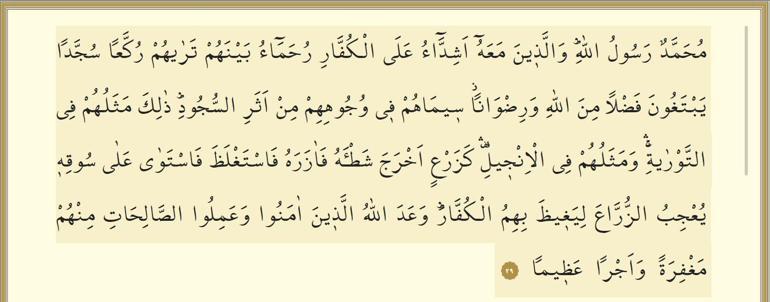 مُحَمَّدٌ رَسُولُ اللّٰهِۜ وَالَّذ۪ينَ مَعَهُٓ اَشِدَّٓاءُ عَلَى الْكُفَّارِ رُحَمَٓاءُ بَيْنَهُمْ تَرٰيهُمْ رُكَّعًا سُجَّدًا
يَبْتَغُونَ فَضْلًا مِنَ اللّٰهِ وَرِضْوَانًاۘ س۪يمَاهُمْ ف۪ي وُجُوهِهِمْ مِنْ اَثَرِ السُّجُودِۜ ذٰلِكَ مَثَلُهُمْ فِي
التَّوْرٰيةِۚۛ وَمَثَلُهُمْ فِي الْاِنْج۪يلِ۠ۛ كَزَرْعٍ اَخْرَجَ شَطْـَٔهُ فَاٰزَرَهُ فَاسْتَغْلَظَ فَاسْتَوٰى عَلٰى سُوقِه۪
يُعْجِبُ الزُّرَّاعَ لِيَغ۪يظَ بِهِمُ الْكُفَّارَۜ وَعَدَ اللّٰهُ الَّذ۪ينَ اٰمَنُوا وَعَمِلُوا الصَّالِحَاتِ مِنْهُمْ
مَغْفِرَةً وَاَجْرًا عَظ۪يمًا ٢٩